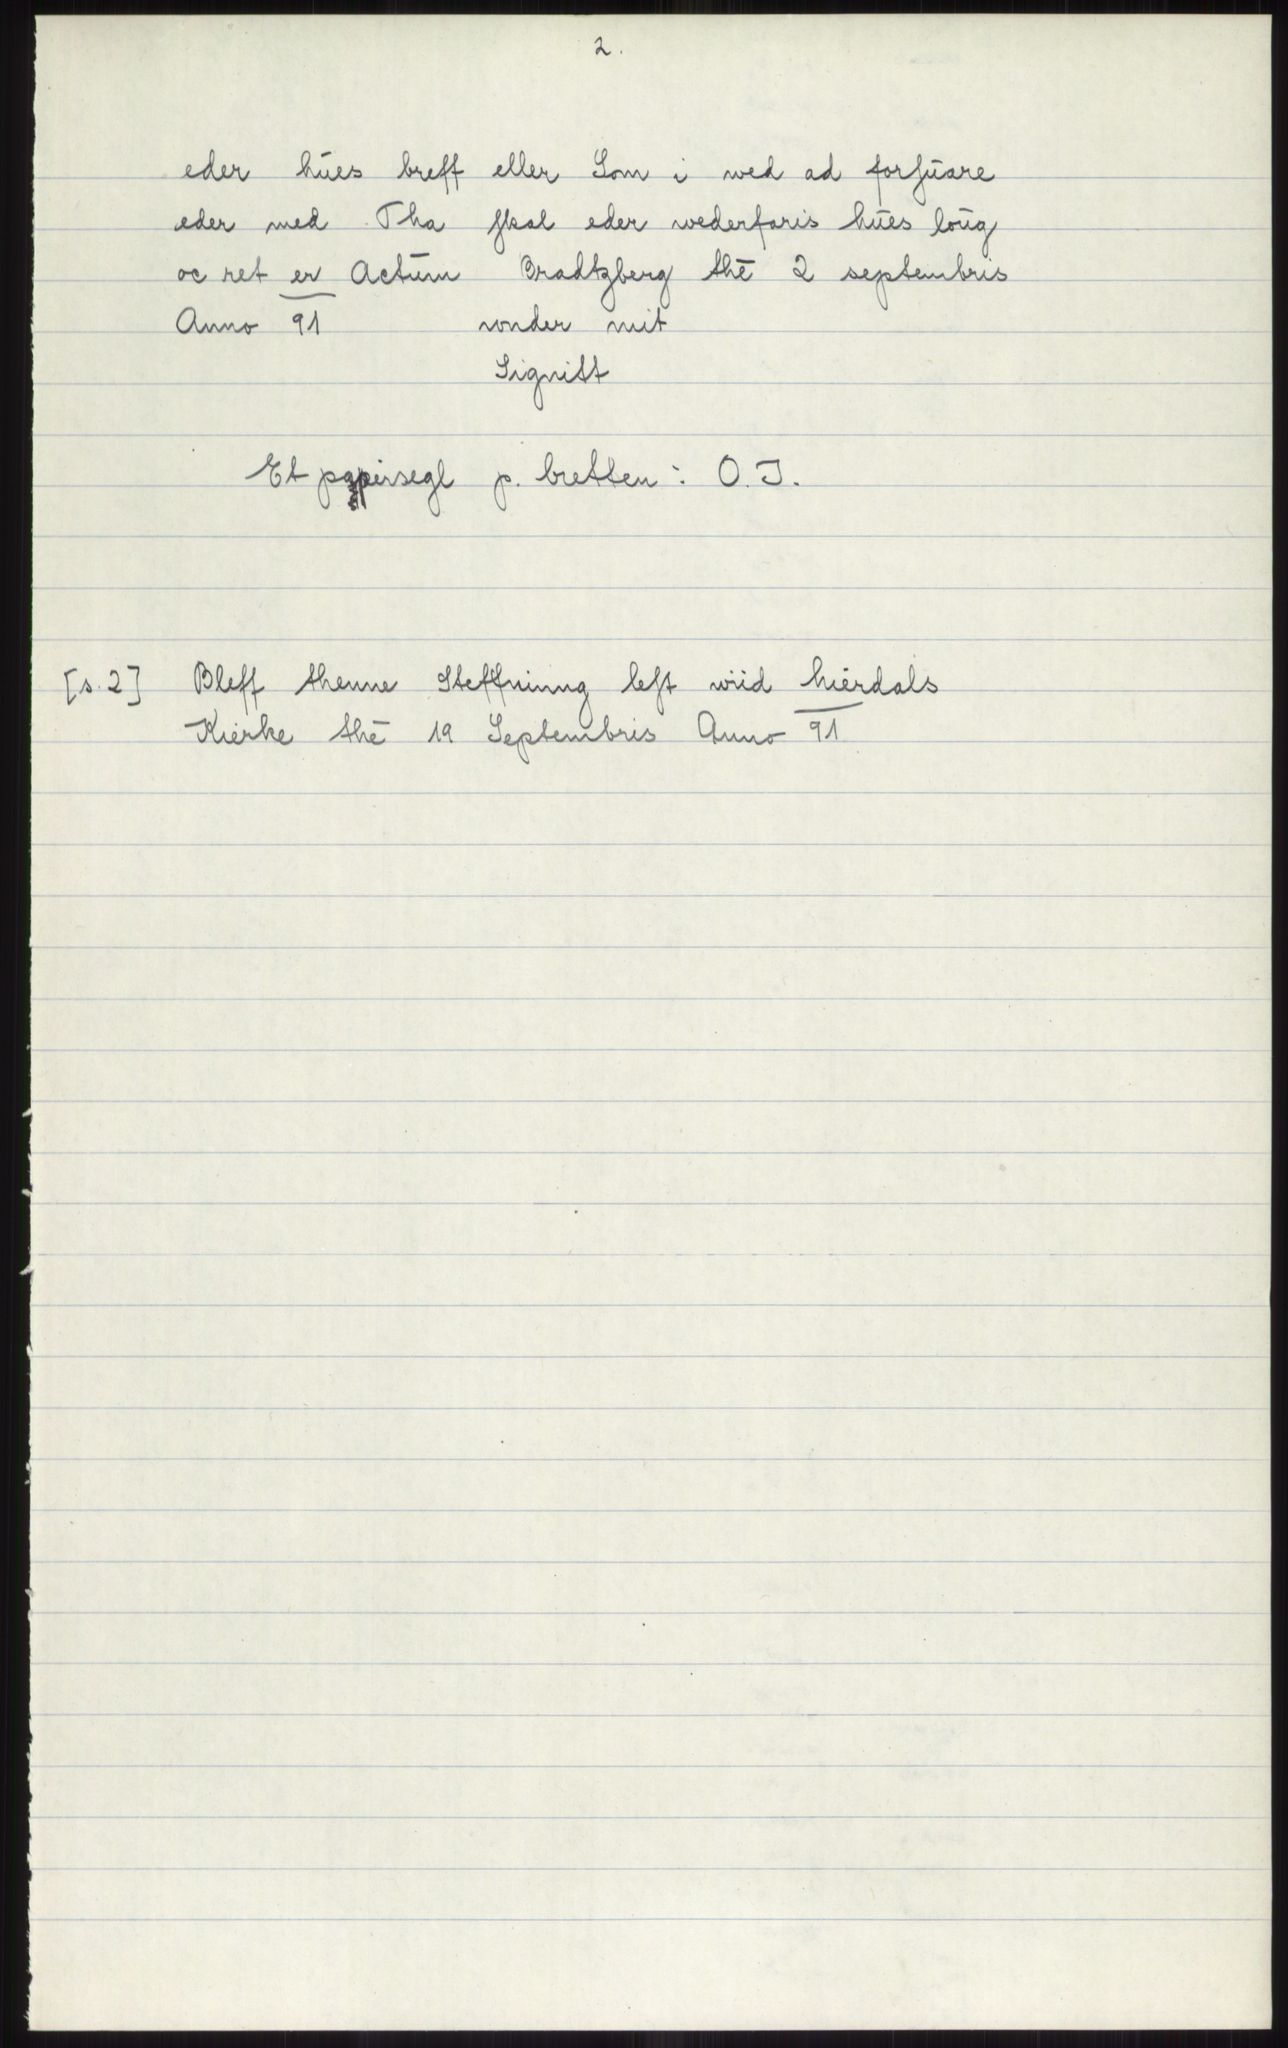 2.
eder hūes breff eller Som i wed ad forſūare
eder med Tha ſkal eder wederfaris hūes loūg
oc ret er Actūm Bradtzberg thē 2 septembris
Anno 91 wnder mit
Signitt
Et papirsegl p. bretten: O. J.
[s. 2] Bleff thenne Steffninng leſt wiid hiērdals
Kiērke thē 19 Septembris Anno 91